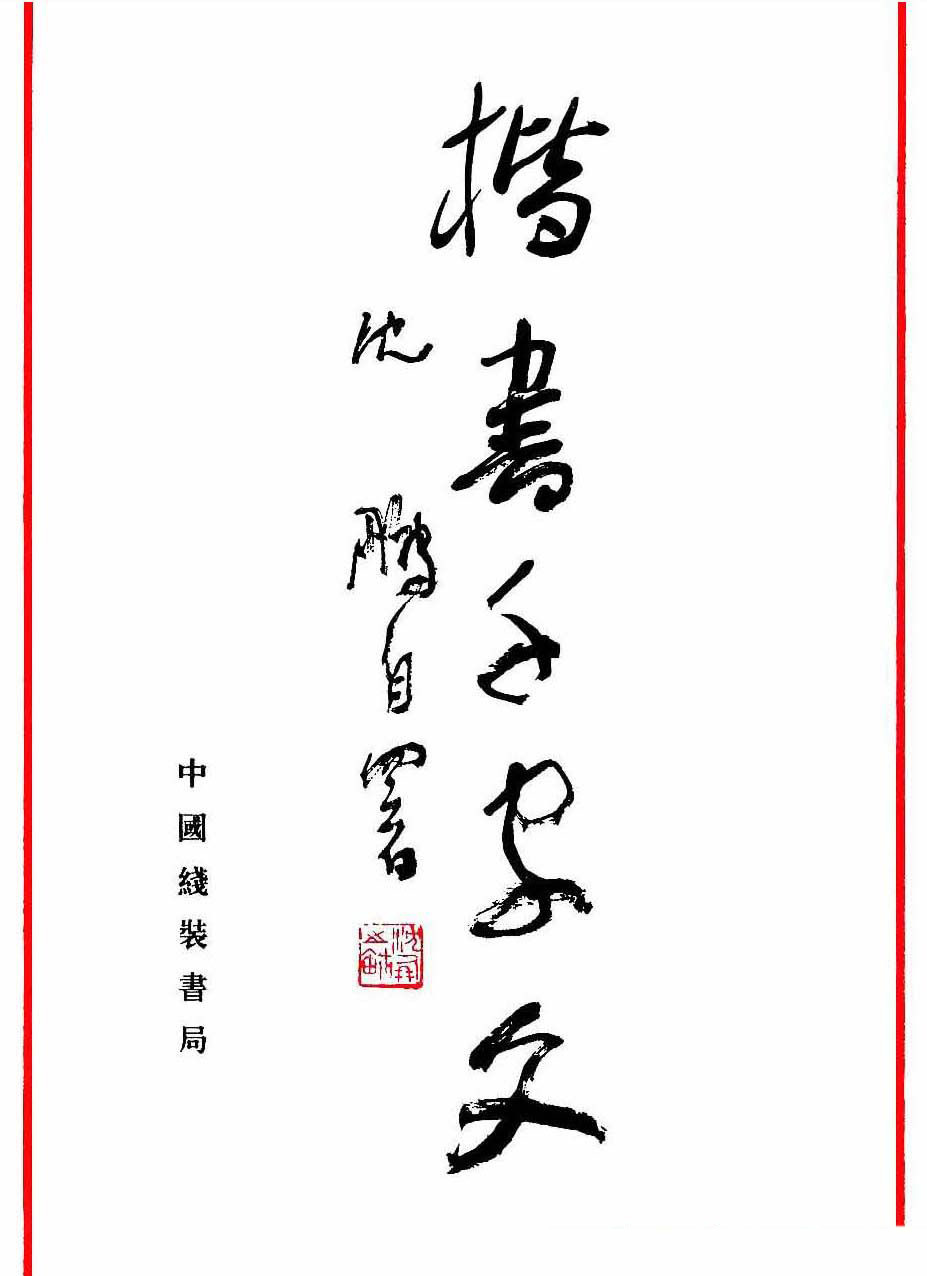 楷書千字文
沈鵬自署
中國綫裝書局